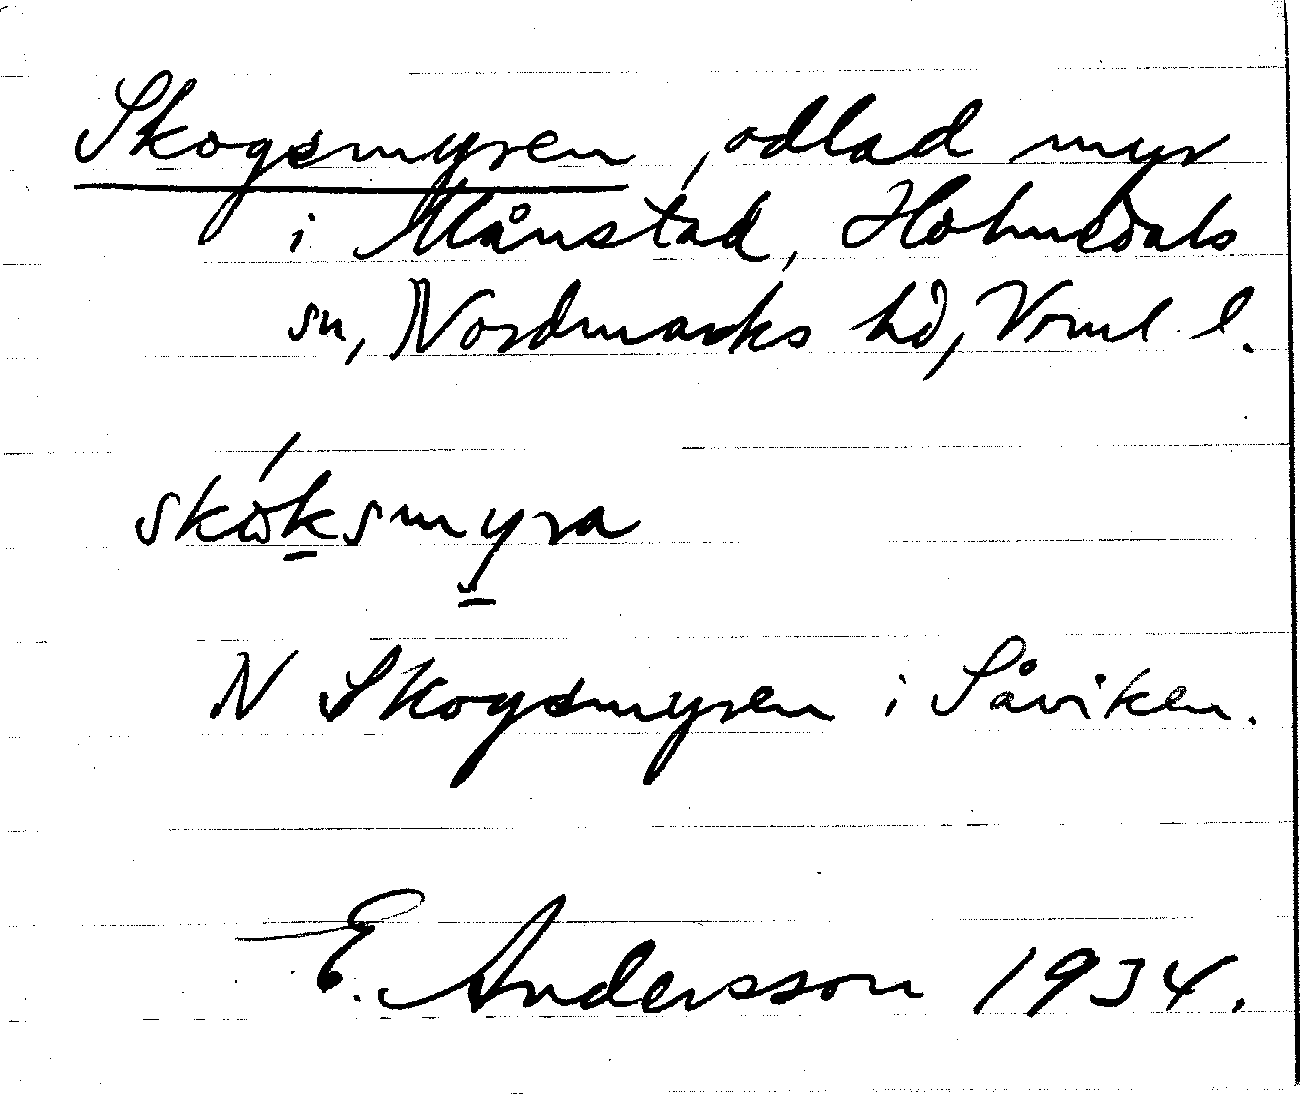 Skogsmyren, odlad myr
i Månstad, Holmedals
sn, Nordmarks hd, Vrml l.
skóksmyra
N Skogsmyren i Såviken.
E. Andersson 1934.